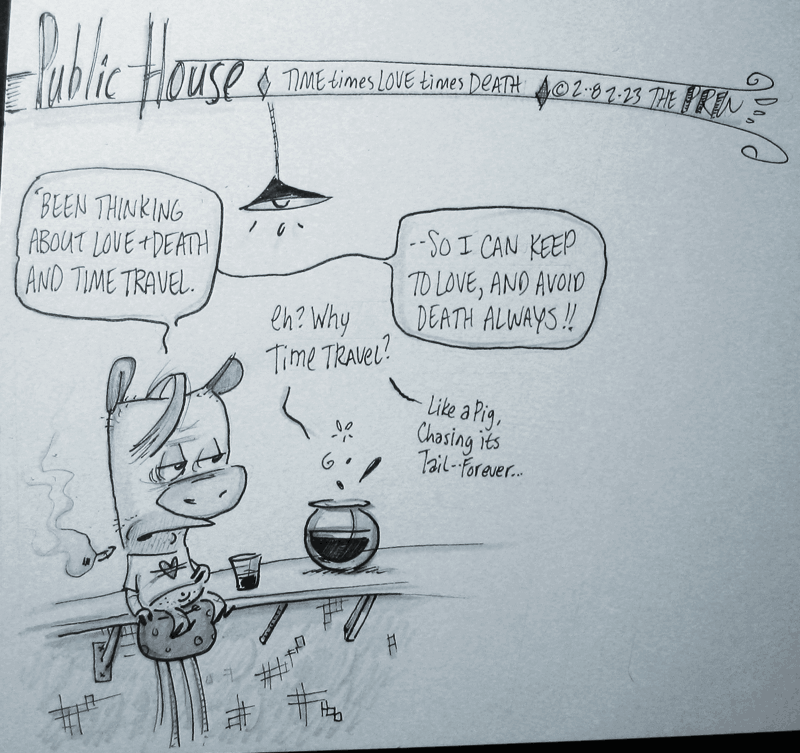 Public House
TIME times LOVE times DEATH
© 2-8 2-23 THE PREN
'BEEN THINKING
ABOUT LOVE + DEATH
AND TIME TRAVEL.
--SO I CAN KEEP
TO LOVE, AND AVOID
DEATH ALWAYS!!
eh? Why
Time TRAVEL?
Like a Pig,
Chasing its
Tail--Forever...